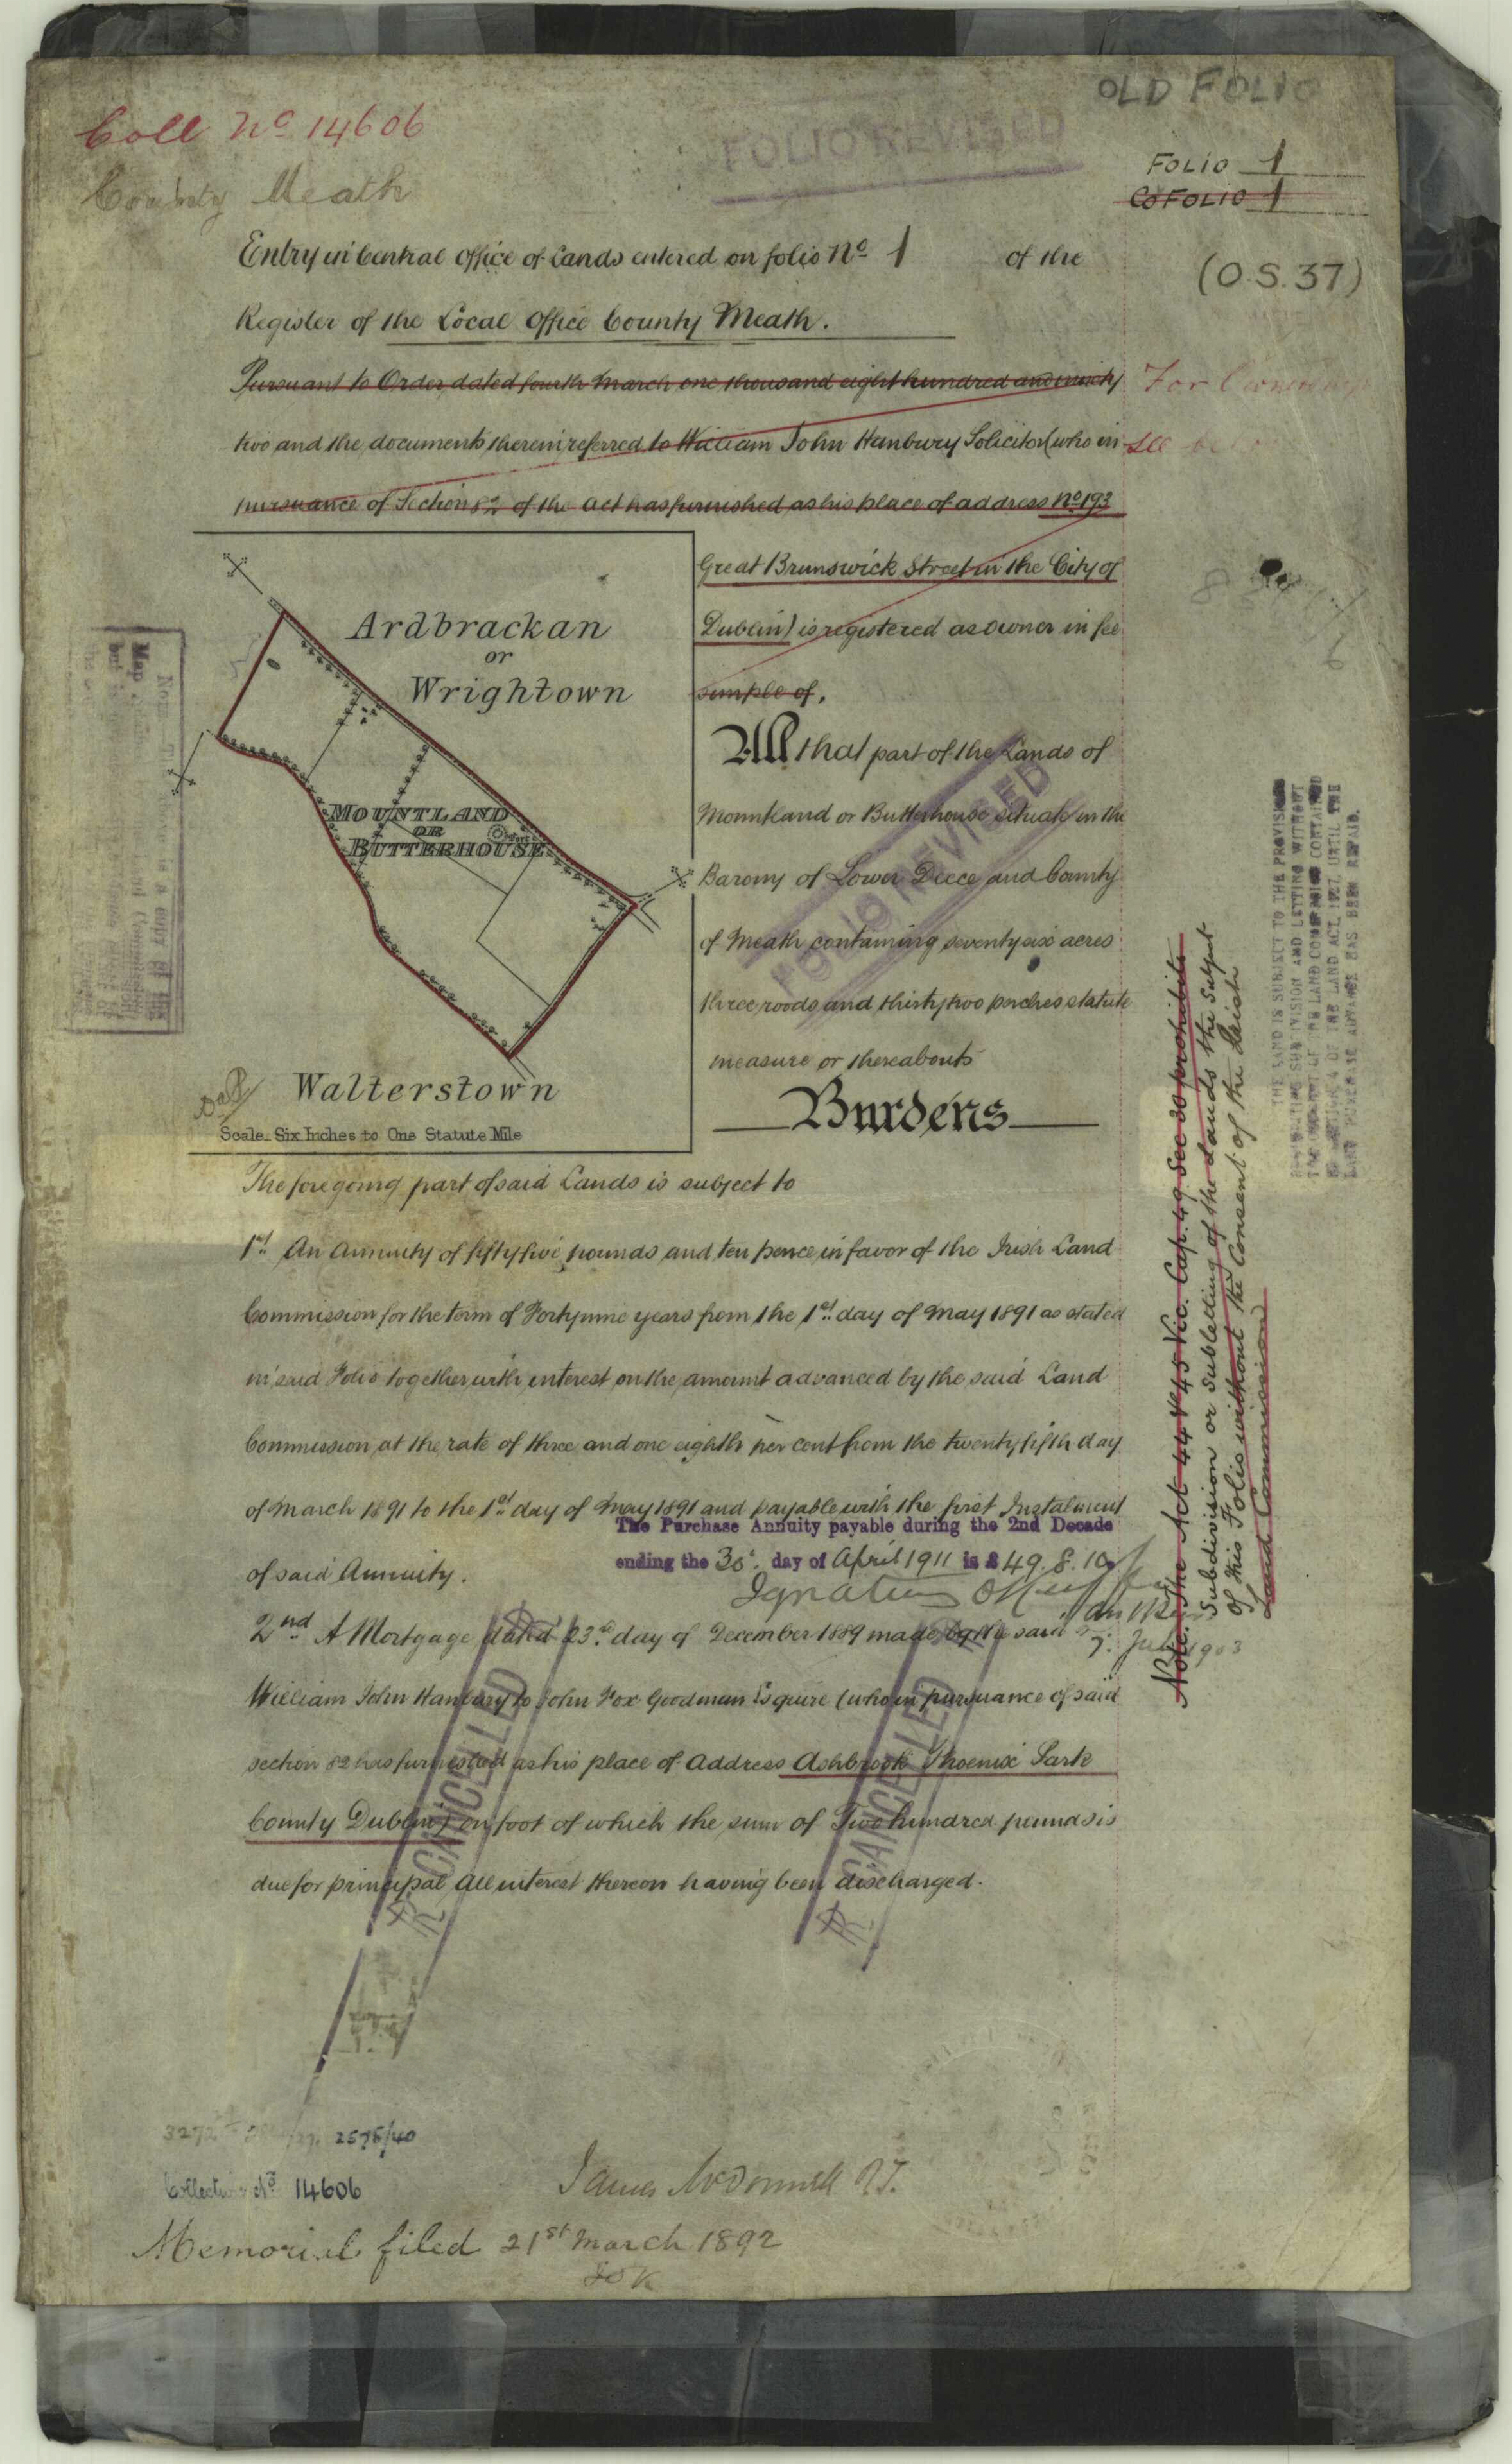 OLD FOLIO
Coll No 14606
FOLIO REVISED
County Meath
FOLIO 1
CO FOLIO 1
Entry in Central Office of Lands entered on folio No 1 of the
(O.S. 37)
Register of the Local Office County Meath.
Pursuant to Order dated fourth March one thousand eight hundred and ninety
For Ownership
two and the documents therein referred to William John Hanbury Solicitor (who in
see
pursuance of Section 82 of the Act has furnished as his place of address No 193
Great Brunswick Street in the City of
Dublin) is registered as owner in fee
simple of,
All that part of the Lands of
Mountland or Butterhouse situate in the
Barony of Lower Deece and County
of Meath containing seventy six acres
three roods and thirty two perches statute
measure or thereabouts
FOLIO REVISED
Ardbrackan
or
Wrightown
MOUNTLAND
OR
BUTTERHOUSE
Walterstown
Scale Six Inches to One Statute Mile
Burdens
The foregoing part of said Lands is subject to
1st An Annuity of fifty five pounds and ten pence in favor of the Irish Land
Commission for the term of Forty nine years from the 1st day of May 1891 as stated
in said Folio together with interest on the amount advanced by the said Land
Commission at the rate of three and one eighth per cent from the twenty fifth day
of March 1891 to the 1st day of May 1891 and payable with the first Instalment
The Purchase Annuity payable during the 2nd Decade
ending the 30th day of April 1911 is £49.8.10
of said Annuity.
Ignatius
7. July 1903
2nd A Mortgage dated 23rd day of December 1889 made by the said
William John Hanbury to John Fox Goodman Esquire (who in pursuance of said
section 82 has furnished as his place of Address Ashbrook Phoenix Park
County Dublin) on foot of which the sum of Two hundred pounds is
due for principal All interest thereon having been discharged.
CANCELLED
CANCELLED
Note: The Act 44 & 45 Vic. Cap. 49 Sec 30 prohibits
Subdivision or Subletting of the Lands the Subject
of this Folio without the Consent of the Irish
Land Commission
THE LAND IS SUBJECT TO THE PROVISIONS
PROHIBITING SUB DIVISION AND LETTING WITHOUT
THE CONSENT OF THE LAND COMMISSION CONTAINED
IN SECTION 4 OF THE LAND ACT, 1927, UNTIL THE
LAND PURCHASE ADVANCE HAS BEEN REPAID.
2575/40
Collection No 14606
James McDonnell
Memorial filed 21st March 1892